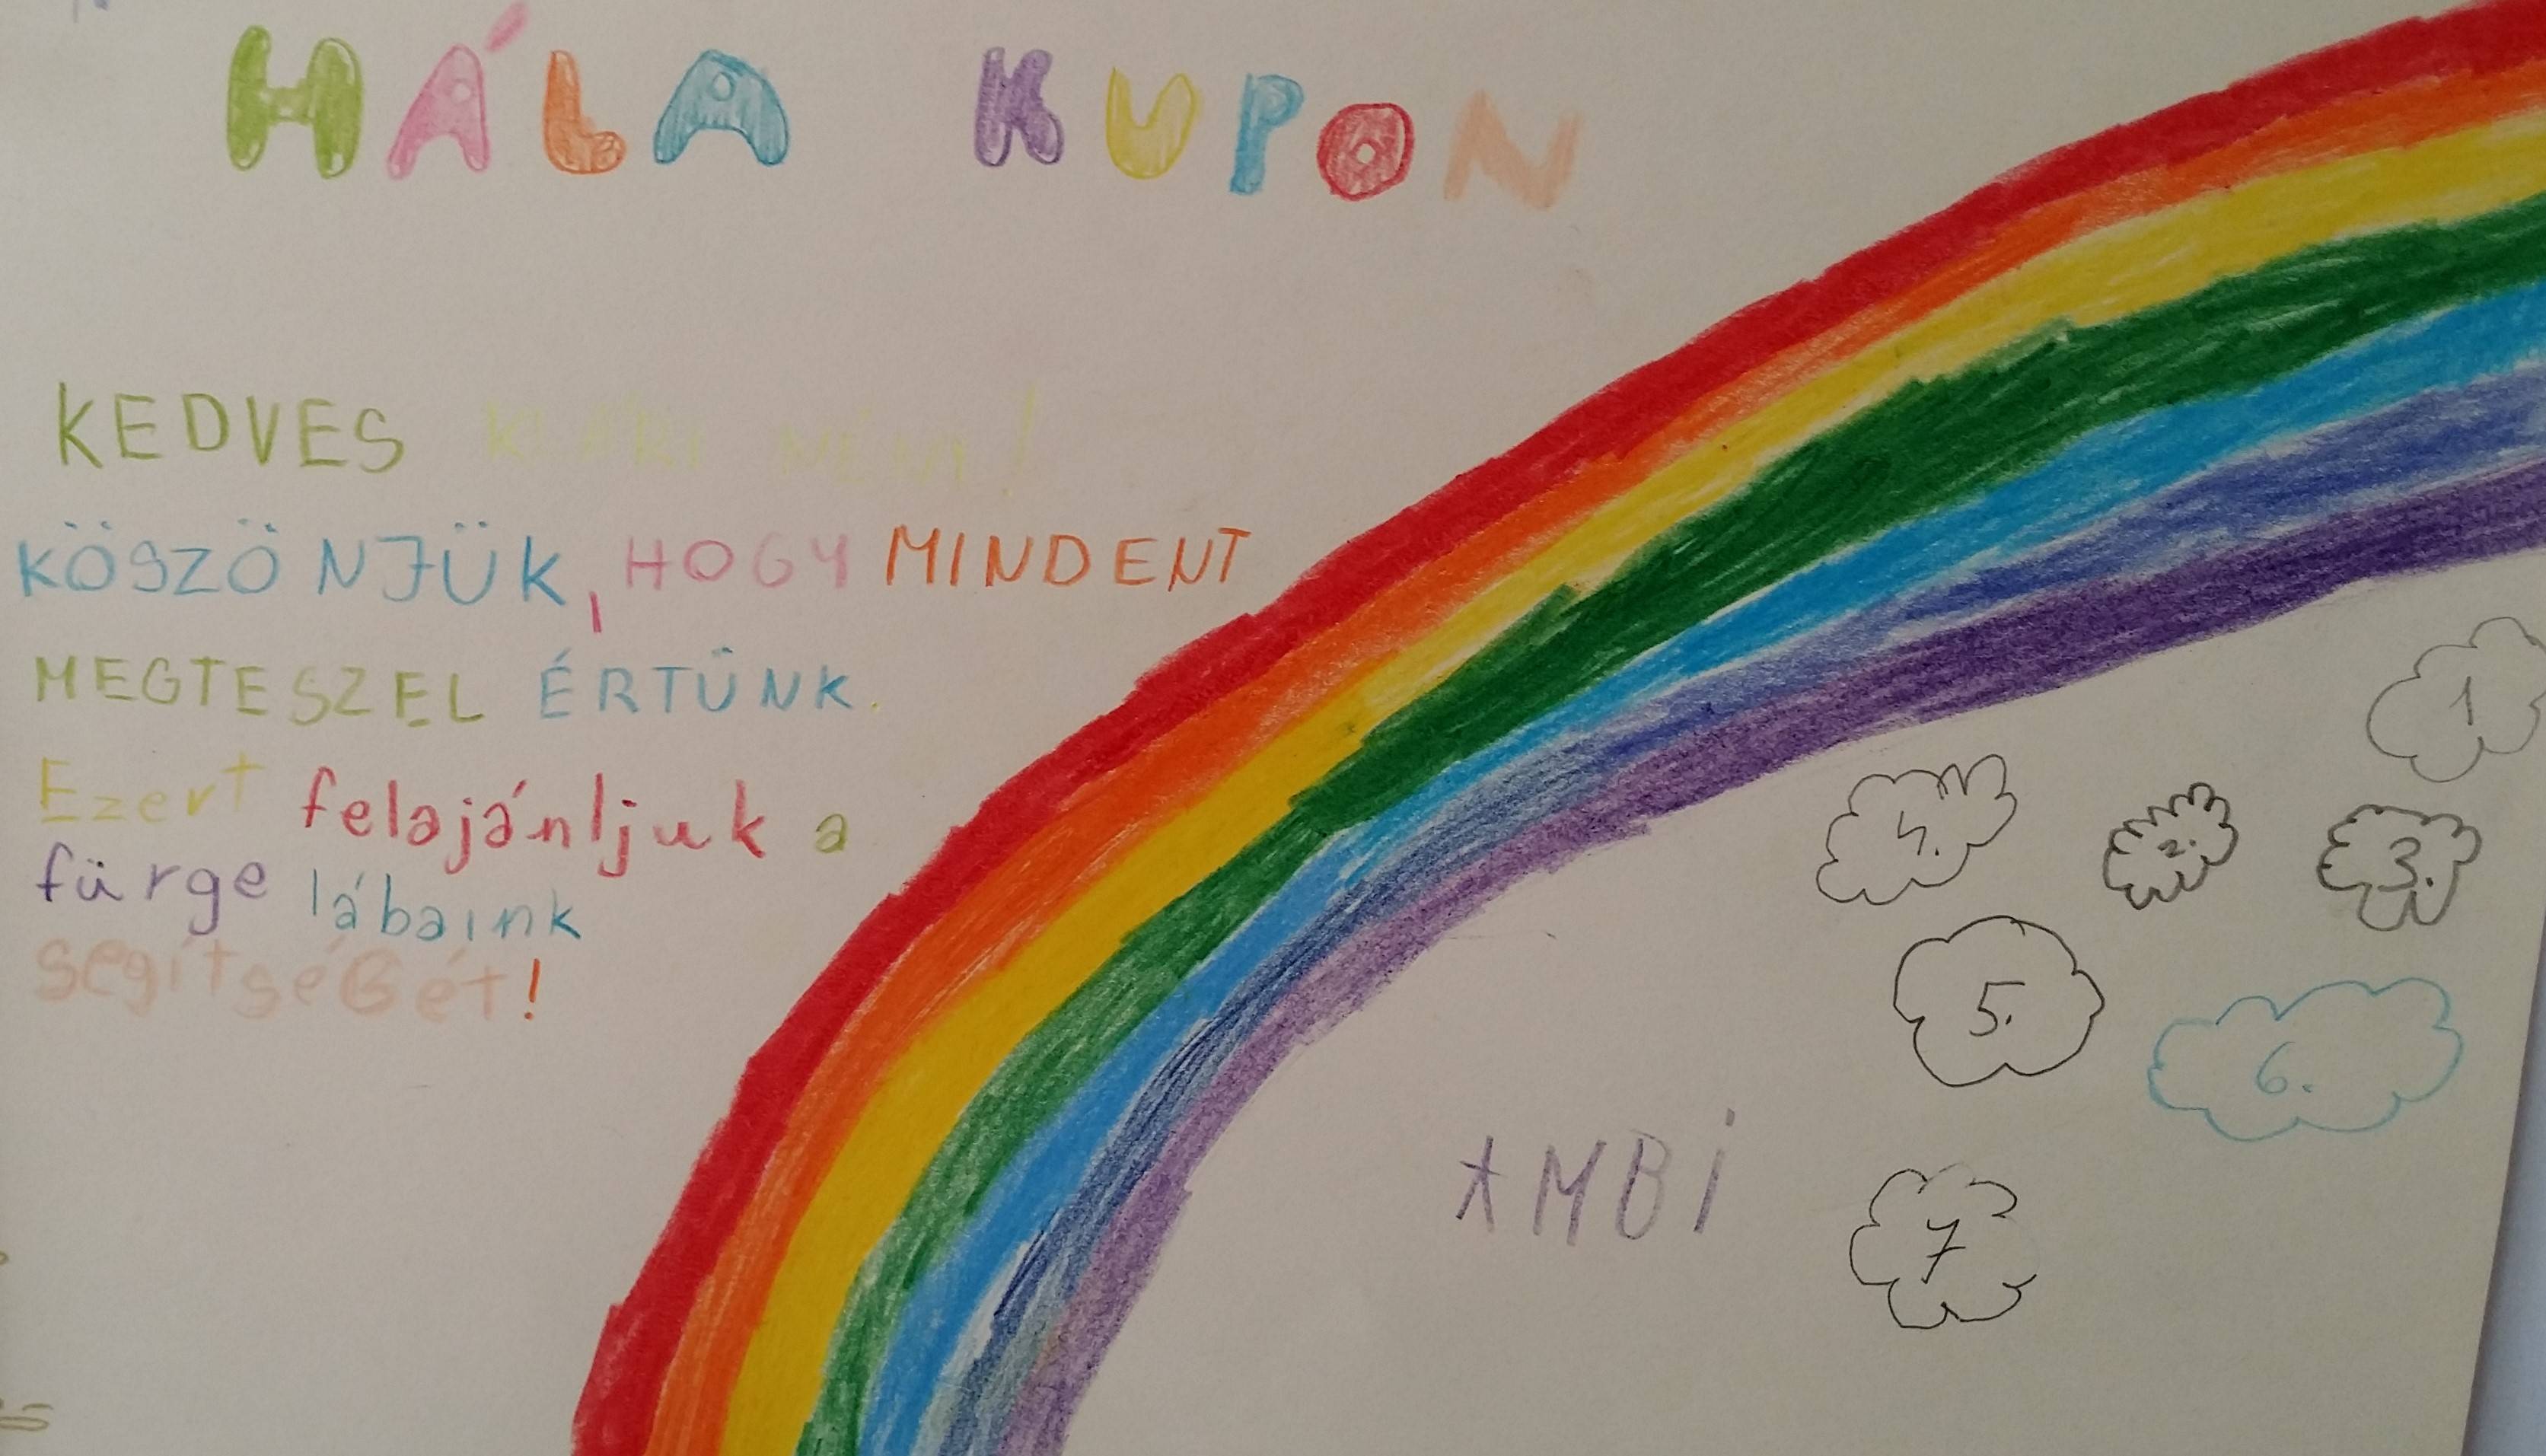 HÁLA KUPON
KEDVES KLÁRI NÉNI!
KÖSZÖNJÜK, HOGY MINDENT
MEGTESZEL ÉRTÜNK.
Ezert felajánljuk a
fürge lábaink
segítségét!
1
4.
2.
3.
5.
6.
AMBI
7